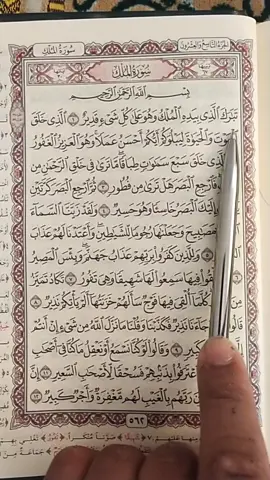 الجزء التاسع والعشرون
سورة الملك
سُورَةُ المُلْكِ
بِسْمِ اللَّهِ الرَّحْمَٰنِ الرَّحِيمِ
تَبَٰرَكَ ٱلَّذِى بِيَدِهِ ٱلْمُلْكُ وَهُوَ عَلَىٰ كُلِّ شَىْءٍ قَدِيرٌ ١ ٱلَّذِى خَلَقَ
وَٱلْحَيَوٰةَ لِيَبْلُوَكُمْ أَيُّكُمْ أَحْسَنُ عَمَلًا وَهُوَ ٱلْعَزِيزُ ٱلْغَفُورُ
خَلَقَ سَبْعَ سَمَٰوَٰتٍ طِبَاقًا مَّا تَرَىٰ فِى خَلْقِ ٱلرَّحْمَٰنِ مِن
فَٱرْجِعِ ٱلْبَصَرَ هَلْ تَرَىٰ مِن فُطُورٍ ٣ ثُمَّ ٱرْجِعِ ٱلْبَصَرَ كَرَّتَيْنِ
إِلَيْكَ ٱلْبَصَرُ خَاسِئًا وَهُوَ حَسِيرٌ ٤ وَلَقَدْ زَيَّنَّا ٱلسَّمَآءَ
وَجَعَلْنَٰهَا رُجُومًا لِّلشَّيَٰطِينِ وَأَعْتَدْنَا لَهُمْ عَذَابَ
وَلِلَّذِينَ كَفَرُوا۟ بِرَبِّهِمْ عَذَابُ جَهَنَّمَ وَبِئْسَ ٱلْمَصِيرُ
فِيهَا سَمِعُوا۟ لَهَا شَهِيقًا وَهِىَ تَفُورُ ٧ تَكَادُ تَمَيَّزُ
كُلَّمَآ أُلْقِىَ فِيهَا فَوْجٌ سَأَلَهُمْ خَزَنَتُهَآ أَلَمْ يَأْتِكُمْ نَذِيرٌ ٨
جَآءَنَا نَذِيرٌ فَكَذَّبْنَا وَقُلْنَا مَا نَزَّلَ ٱللَّهُ مِن شَىْءٍ إِنْ أَنتُمْ
كَبِيرٍ ٩ وَقَالُوا۟ لَوْ كُنَّا نَسْمَعُ أَوْ نَعْقِلُ مَا كُنَّا فِىٓ أَصْحَٰبِ
بِذَنۢبِهِمْ فَسُحْقًا لِّأَصْحَٰبِ ٱلسَّعِيرِ ١١ إِنَّ
رَبَّهُم بِٱلْغَيْبِ لَهُم مَّغْفِرَةٌ وَأَجْرٌ كَبِيرٌ ١٢
٥٦٢